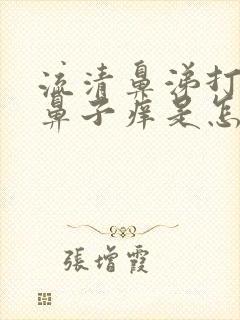 流清鼻涕打
鼻子痒是怎
張增霞